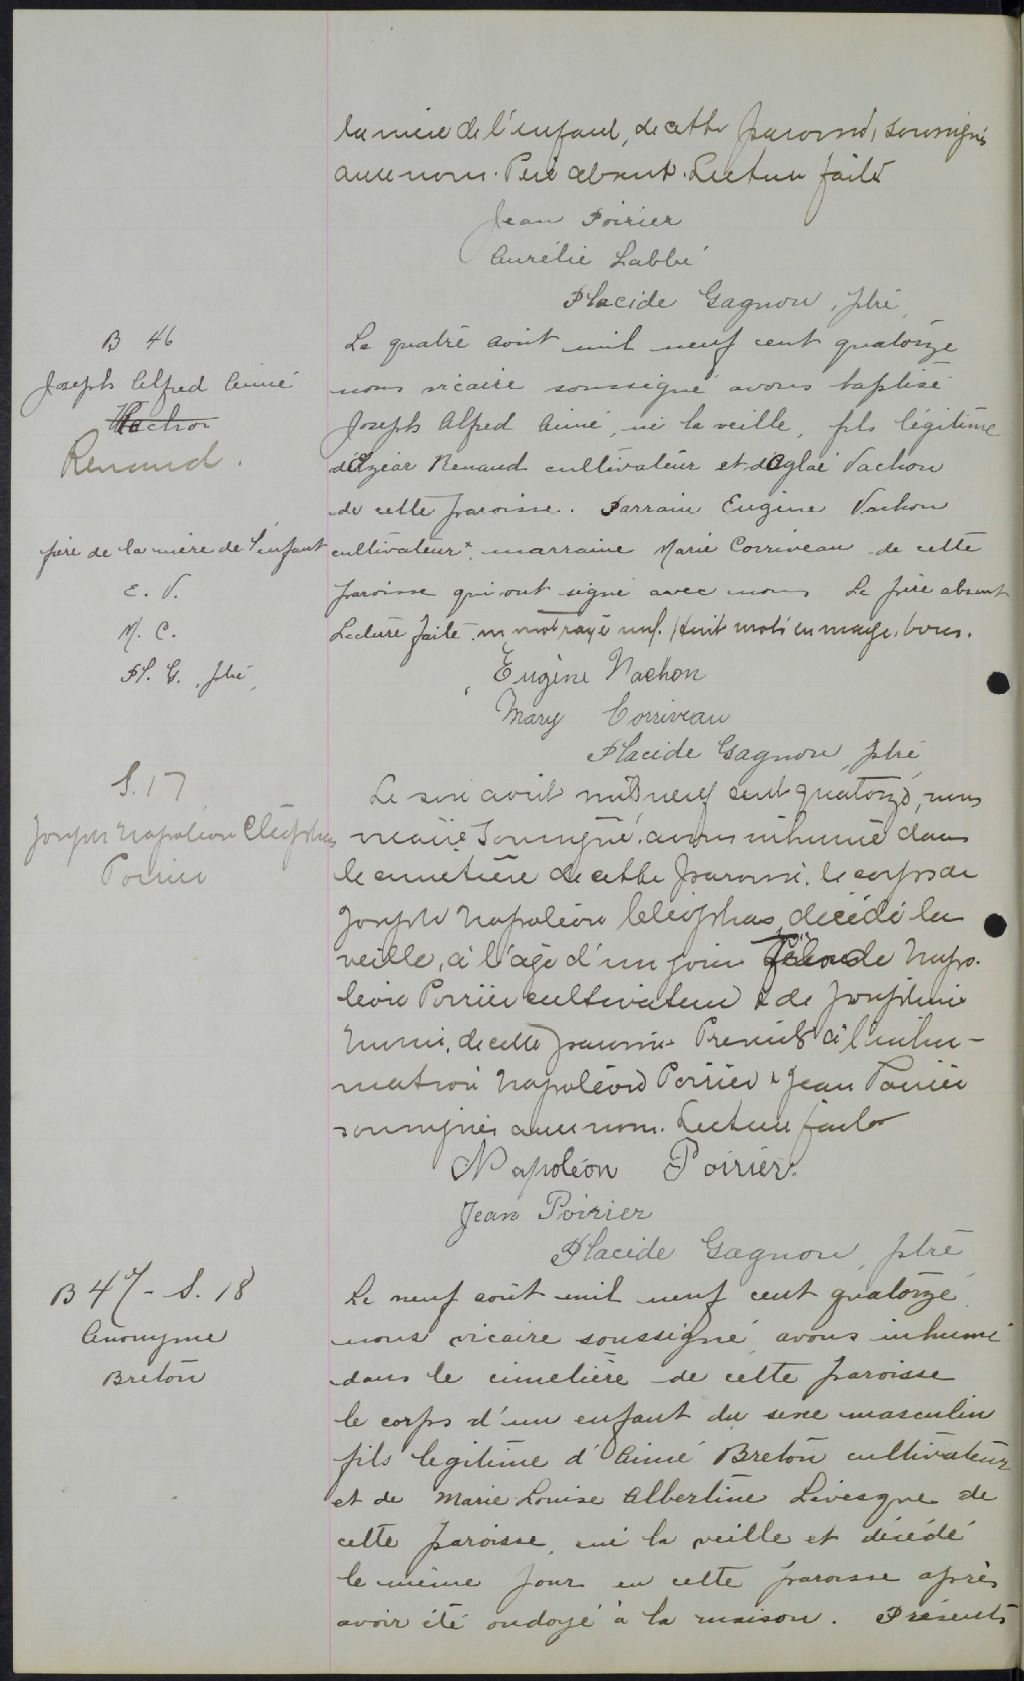 la mère de l'enfant, de cette paroisse, soussignés
avec nous. Père absent. Lecture faite
Jean Poirier
Aurélie Labbé
Placide Gagnon, ptre
B 46
Joseph Alfred Aimé
Vachon
Renaud.
Le quatre août mil neuf cent quatorze
nous vicaire soussigné avons baptisé
Joseph Alfred Aimé, né la veille, fils légitime
d'Elzéar Renaud cultivateur et d'Aglaé Vachon
de cette paroisse. Parrain Eugène Vachon
père de la mère de l'enfant
E. V.
M. C.
Pl. G., ptre
cultivateur x, marraine Marie Corriveau de cette
paroisse qui ont signé avec nous Le père absent
Lecture faite. un mot rayé nul. Huit mots en marge, bons.
Eugène Vachon
Mary Corriveau
Placide Gagnon, ptre
S. 17
Joseph Napoléon Cléophas
Poirier
Le six août mil neuf cent quatorze, nous
vicaire soussigné, avons inhumé dans
le cimetière de cette paroisse, le corps de
Joseph Napoléon Cléophas, décédé la
veille, à l'âge d'un jour de Napo-
léon Poirier cultivateur & de Joséphine
de cette paroisse. Présents à l'inhu-
mation Napoléon Poirier & Jean Poirier
soussignés avec nous. Lecture faite
Napoléon Poirier.
Jean Poirier
Placide Gagnon, ptre
B 47 - S. 18
Anonyme
Breton
Le neuf août mil neuf cent quatorze
nous vicaire soussigné, avons inhumé
dans le cimetière de cette paroisse
le corps d'un enfant du sexe masculin
fils legitime d'Aimé Breton cultivateur
et de Marie Louise Albertine Livesque de
cette paroisse, né la veille et décédé
le même jour en cette paroisse après
avoir été ondoyé à la maison. Présents